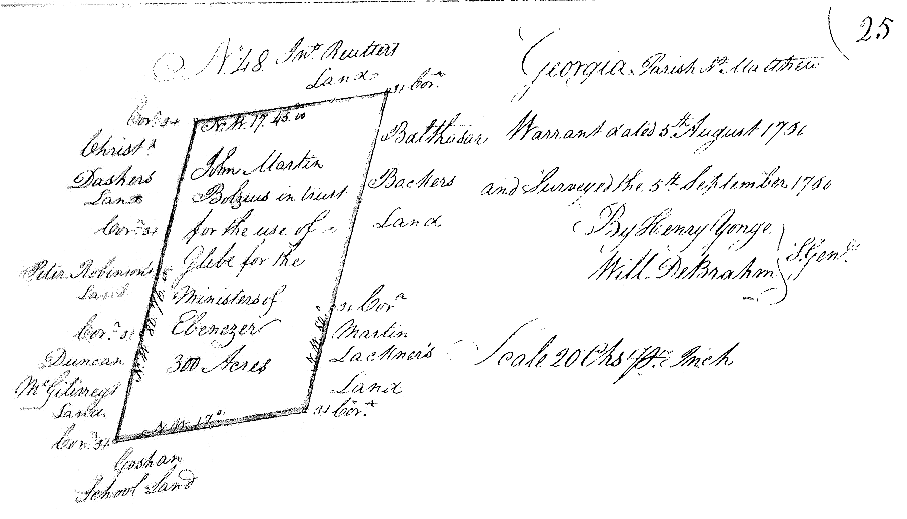 25
No. 48. Jno. Reutters
Land
Georgia. Parish St. Matthew
Warrant dated 5th August 1756
and Surveyed the 5th September 1756
By Henry Yonge
Will. DeBrahm
S. Genl.
Scale 20 Chs pr. Inch
Cor.
Cor.
Christ.
Dashers
Land
Cor.
Peter Robinson's
Land
Cor.
Duncan
McGilivreys
Land
Cor.
John Martin
Bolzius in trust
for the use of a
Glebe for the
Ministers of
Ebenezer
300 Acres
Balthasar
Backers
Land
Cor.
Martin
Lackner's
Land
Cor.
Goshan
School Land